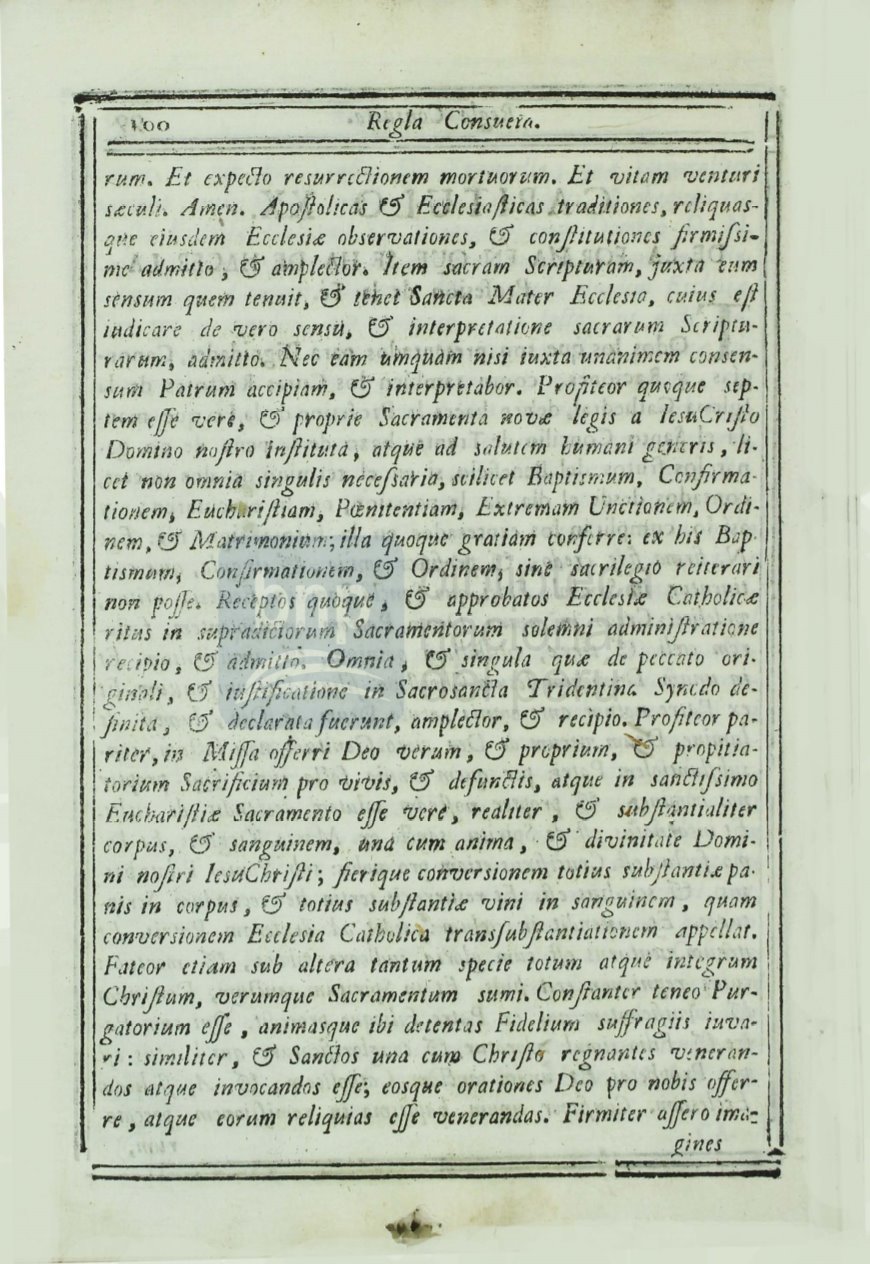 100 Regla Consueta.
rum. Et expecto resurrectionem mortuorum. Et vitam venturi
sæculi. Amen. Apoſtolicas & Eccleſiaſticas traditiones, reliquas-
que eiusdem Ecclesiæ observationes, & conſtitutiones firmiſsi-
me admitto, & amplector. Item sacram Scripturam, juxta eum
sensum quem tenuit, & tenet Sancta Mater Ecclesia, cuius eſt
iudicare de vero sensu, & interpretatione sacrarum Scriptu-
rarum, admitto. Nec eam umquam nisi iuxta unanimem consen-
sum Patrum accipiam, & interpretabor. Profiteor quoque sep-
tem eſſe vere, & proprie Sacramenta novæ legis a IesuCriſto
Domino noſtro inſtituta, atque ad salutem humani generis, li-
cet non omnia singulis neceſsaria, scilicet Baptismum, Confirma-
tionem, Euchariſtiam, Pœnitentiam, Extremam Unctionem, Ordi-
nem, & Matrimonium; illa quoque gratiam conferre: ex his Bap-
tismum, Confirmationem, & Ordinem, sine sacrilegio reiterari
non poſſe. Receptos quoque, & approbatos Ecclesiæ Catholicæ
ritus in supradictorum Sacramentorum solemni adminiſtratione
recipio, & admitto. Omnia, & singula quæ de peccato ori-
ginali, & iuſtificatione in Sacrosancta Tridentina Synodo de-
finita, & declarata fuerunt, amplector, & recipio. Profiteor pa-
riter, in Miſſa offerri Deo verum, & proprium, & propitia-
torium Sacrificium pro vivis, & defunctis, atque in sanctiſsimo
Euchariſtiæ Sacramento eſſe vere, realiter, & subſtantialiter
corpus, & sanguinem, una cum anima, & divinitate Domi-
ni noſtri IesuChriſti; fierique conversionem totius subſtantiæ pa-
nis in corpus, & totius subſtantiæ vini in sanguinem, quam
conversionem Ecclesia Catholica transſubſtantiationem appellat.
Fateor etiam sub altera tantum specie totum atque integrum
Chriſtum, verumque Sacramentum sumi. Conſtanter teneo Pur-
gatorium eſſe, animasque ibi detentas Fidelium suffragiis iuva-
ri: similiter, & Sanctos una cum Chriſto regnantes veneran-
dos atque invocandos eſſe; eosque orationes Deo pro nobis offer-
re, atque eorum reliquias eſſe venerandas. Firmiter aſſero ima-
gines